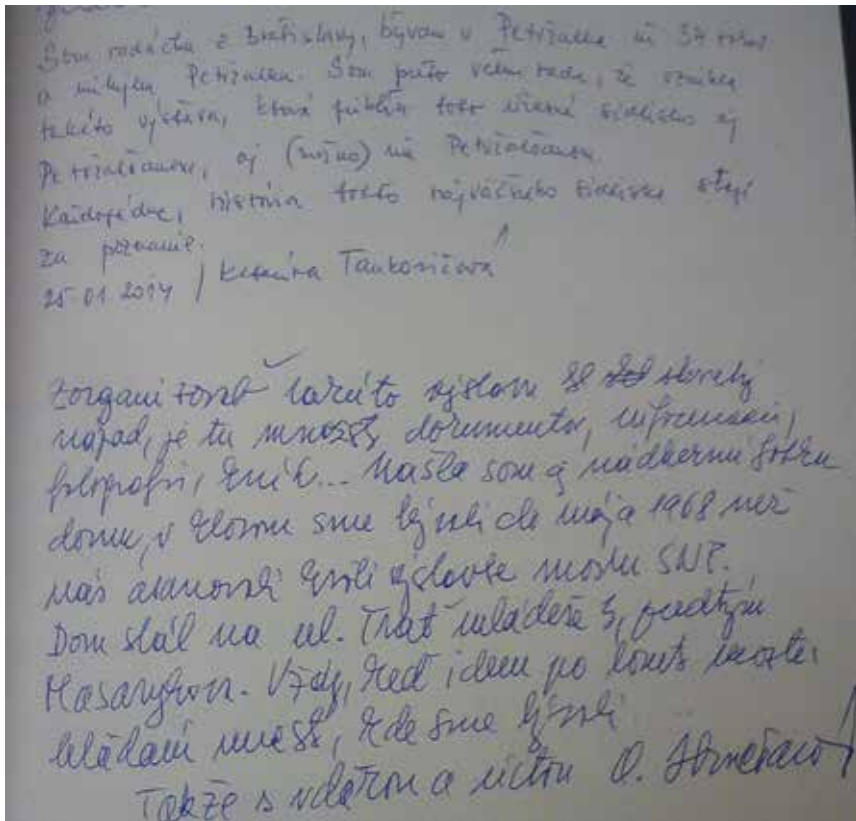 Som rodáčka z Bratislavy, bývam v Petržalke už 34 rokov
a milujem Petržalku. Som preto veľmi rada, že vznikla
takáto výstava, ktorá priblíži toto sídlisko aj
Petržalčanom, aj (možno) ne Petržalčanom.
Každopádne, história tohto najväčšieho sídliska stojí
za poznanie.
25.01.2014 / Katarína
Zorganizovať takúto výstavu je skvelý
nápad, je tu množstvo dokumentov, informácií,
fotografií, kníh... Našla som aj nádhernú fotku
domu, v ktorom sme bývali do mája 1968 než
nás asanovali kvôli výstavbe mostu SNP.
Dom stál na ul. Trať mládeže 5, predtým
Masarykova. Vždy, keď idem po tomto moste,
hľadám miesto, kde sme bývali.
Takže s vďakou a úctou O.